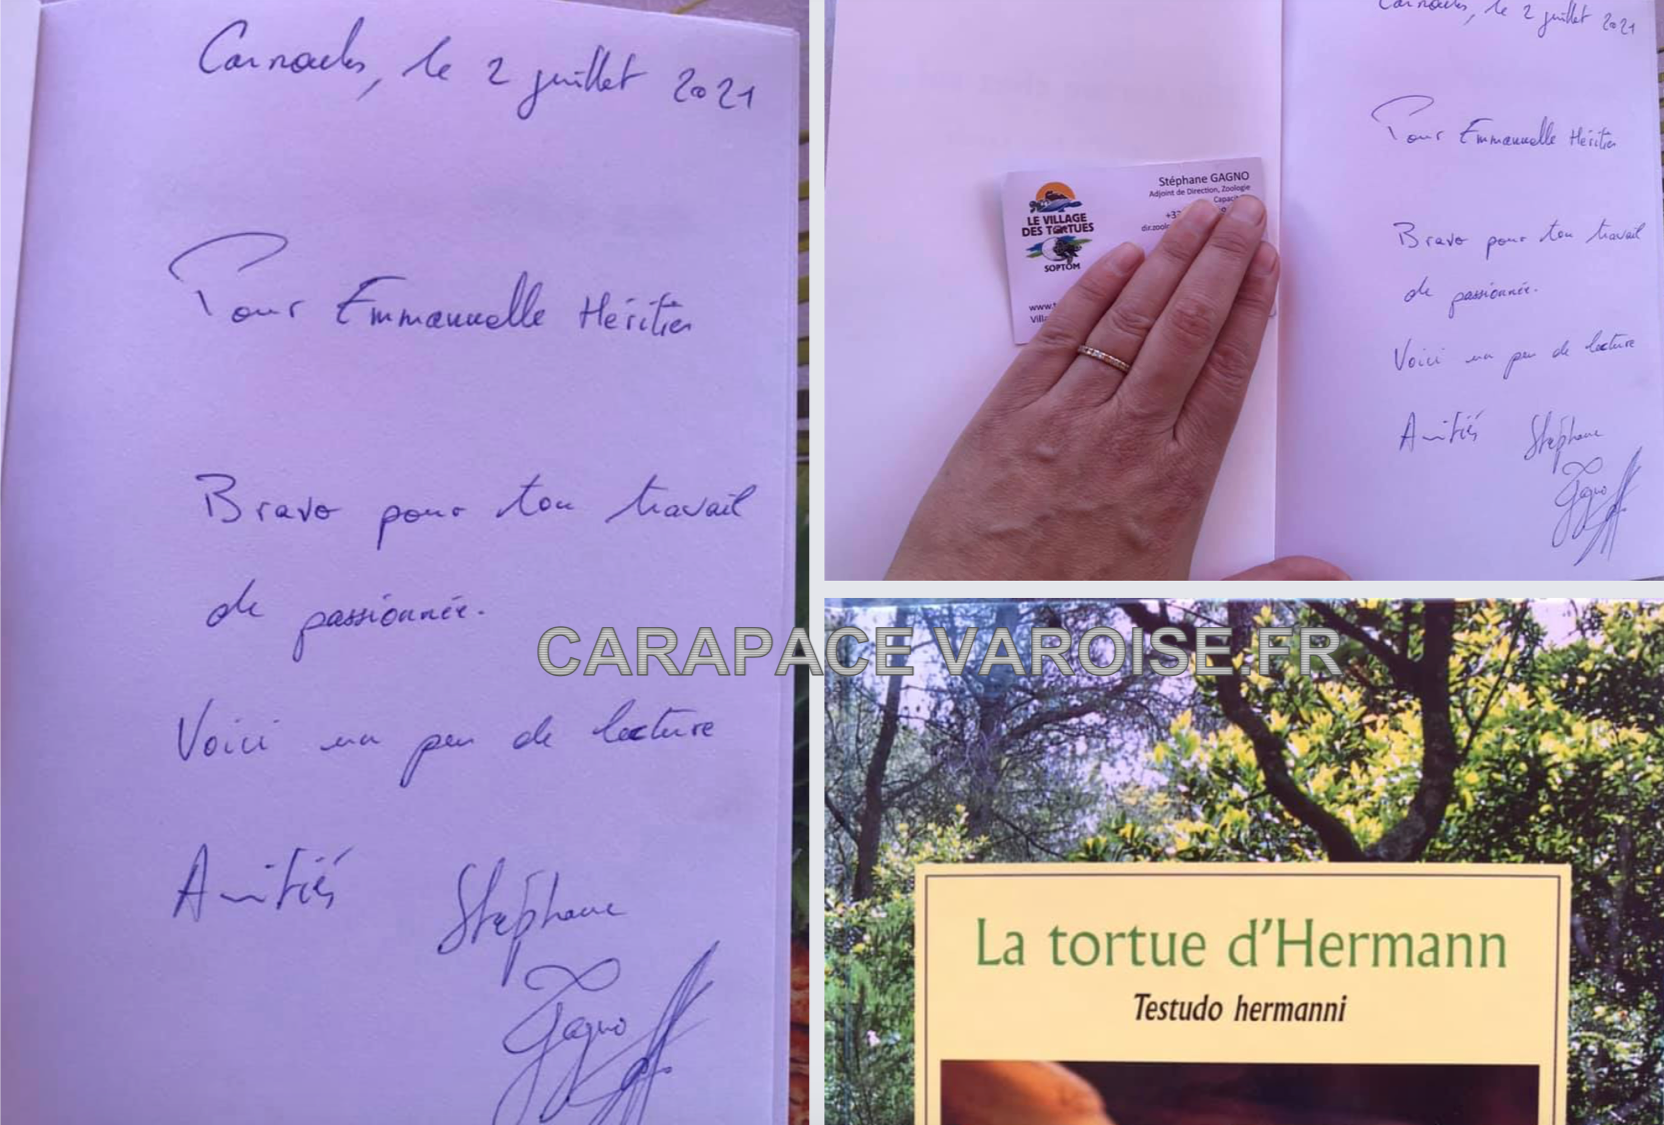 Carnoules, le 2 juillet 2021
Pour Emmanuelle Héritier
Bravo pour ton travail
de passionnée.
Voici un peu de lecture
Amitiés Stéphane
Gagno
Carnoules, le 2 juillet 2021
Pour Emmanuelle Héritier
Bravo pour ton travail
de passionnée.
Voici un peu de lecture
Amitiés Stéphane
Gagno
Stéphane GAGNO
Adjoint de Direction, Zoologie
LE VILLAGE
DES TORTUES
SOPTOM
CARAPACE VAROISE.FR
La tortue d'Hermann
Testudo hermanni